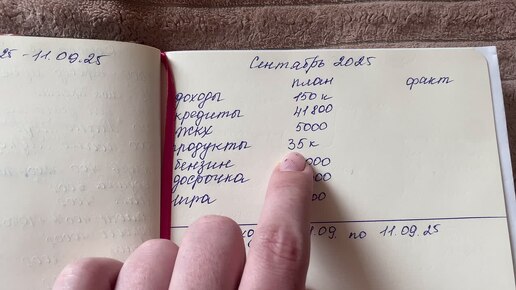 25 - 11.09.25
Сентябрь 2025
план факт
доходы 150 к
кредиты 41800
ЖКХ 5000
продукты 35 к
бензин 000
досрочка 000
игра 00
.09. по 11.09.25